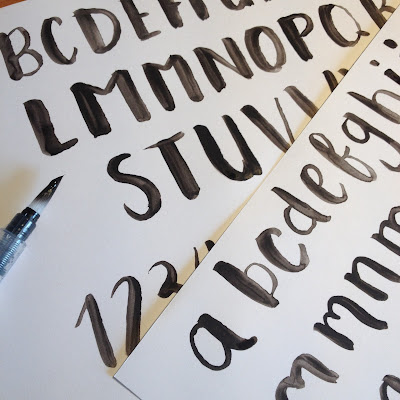 BCDEFG
LMMNOPQR
STUV
123
abcdefghij
mnm
m